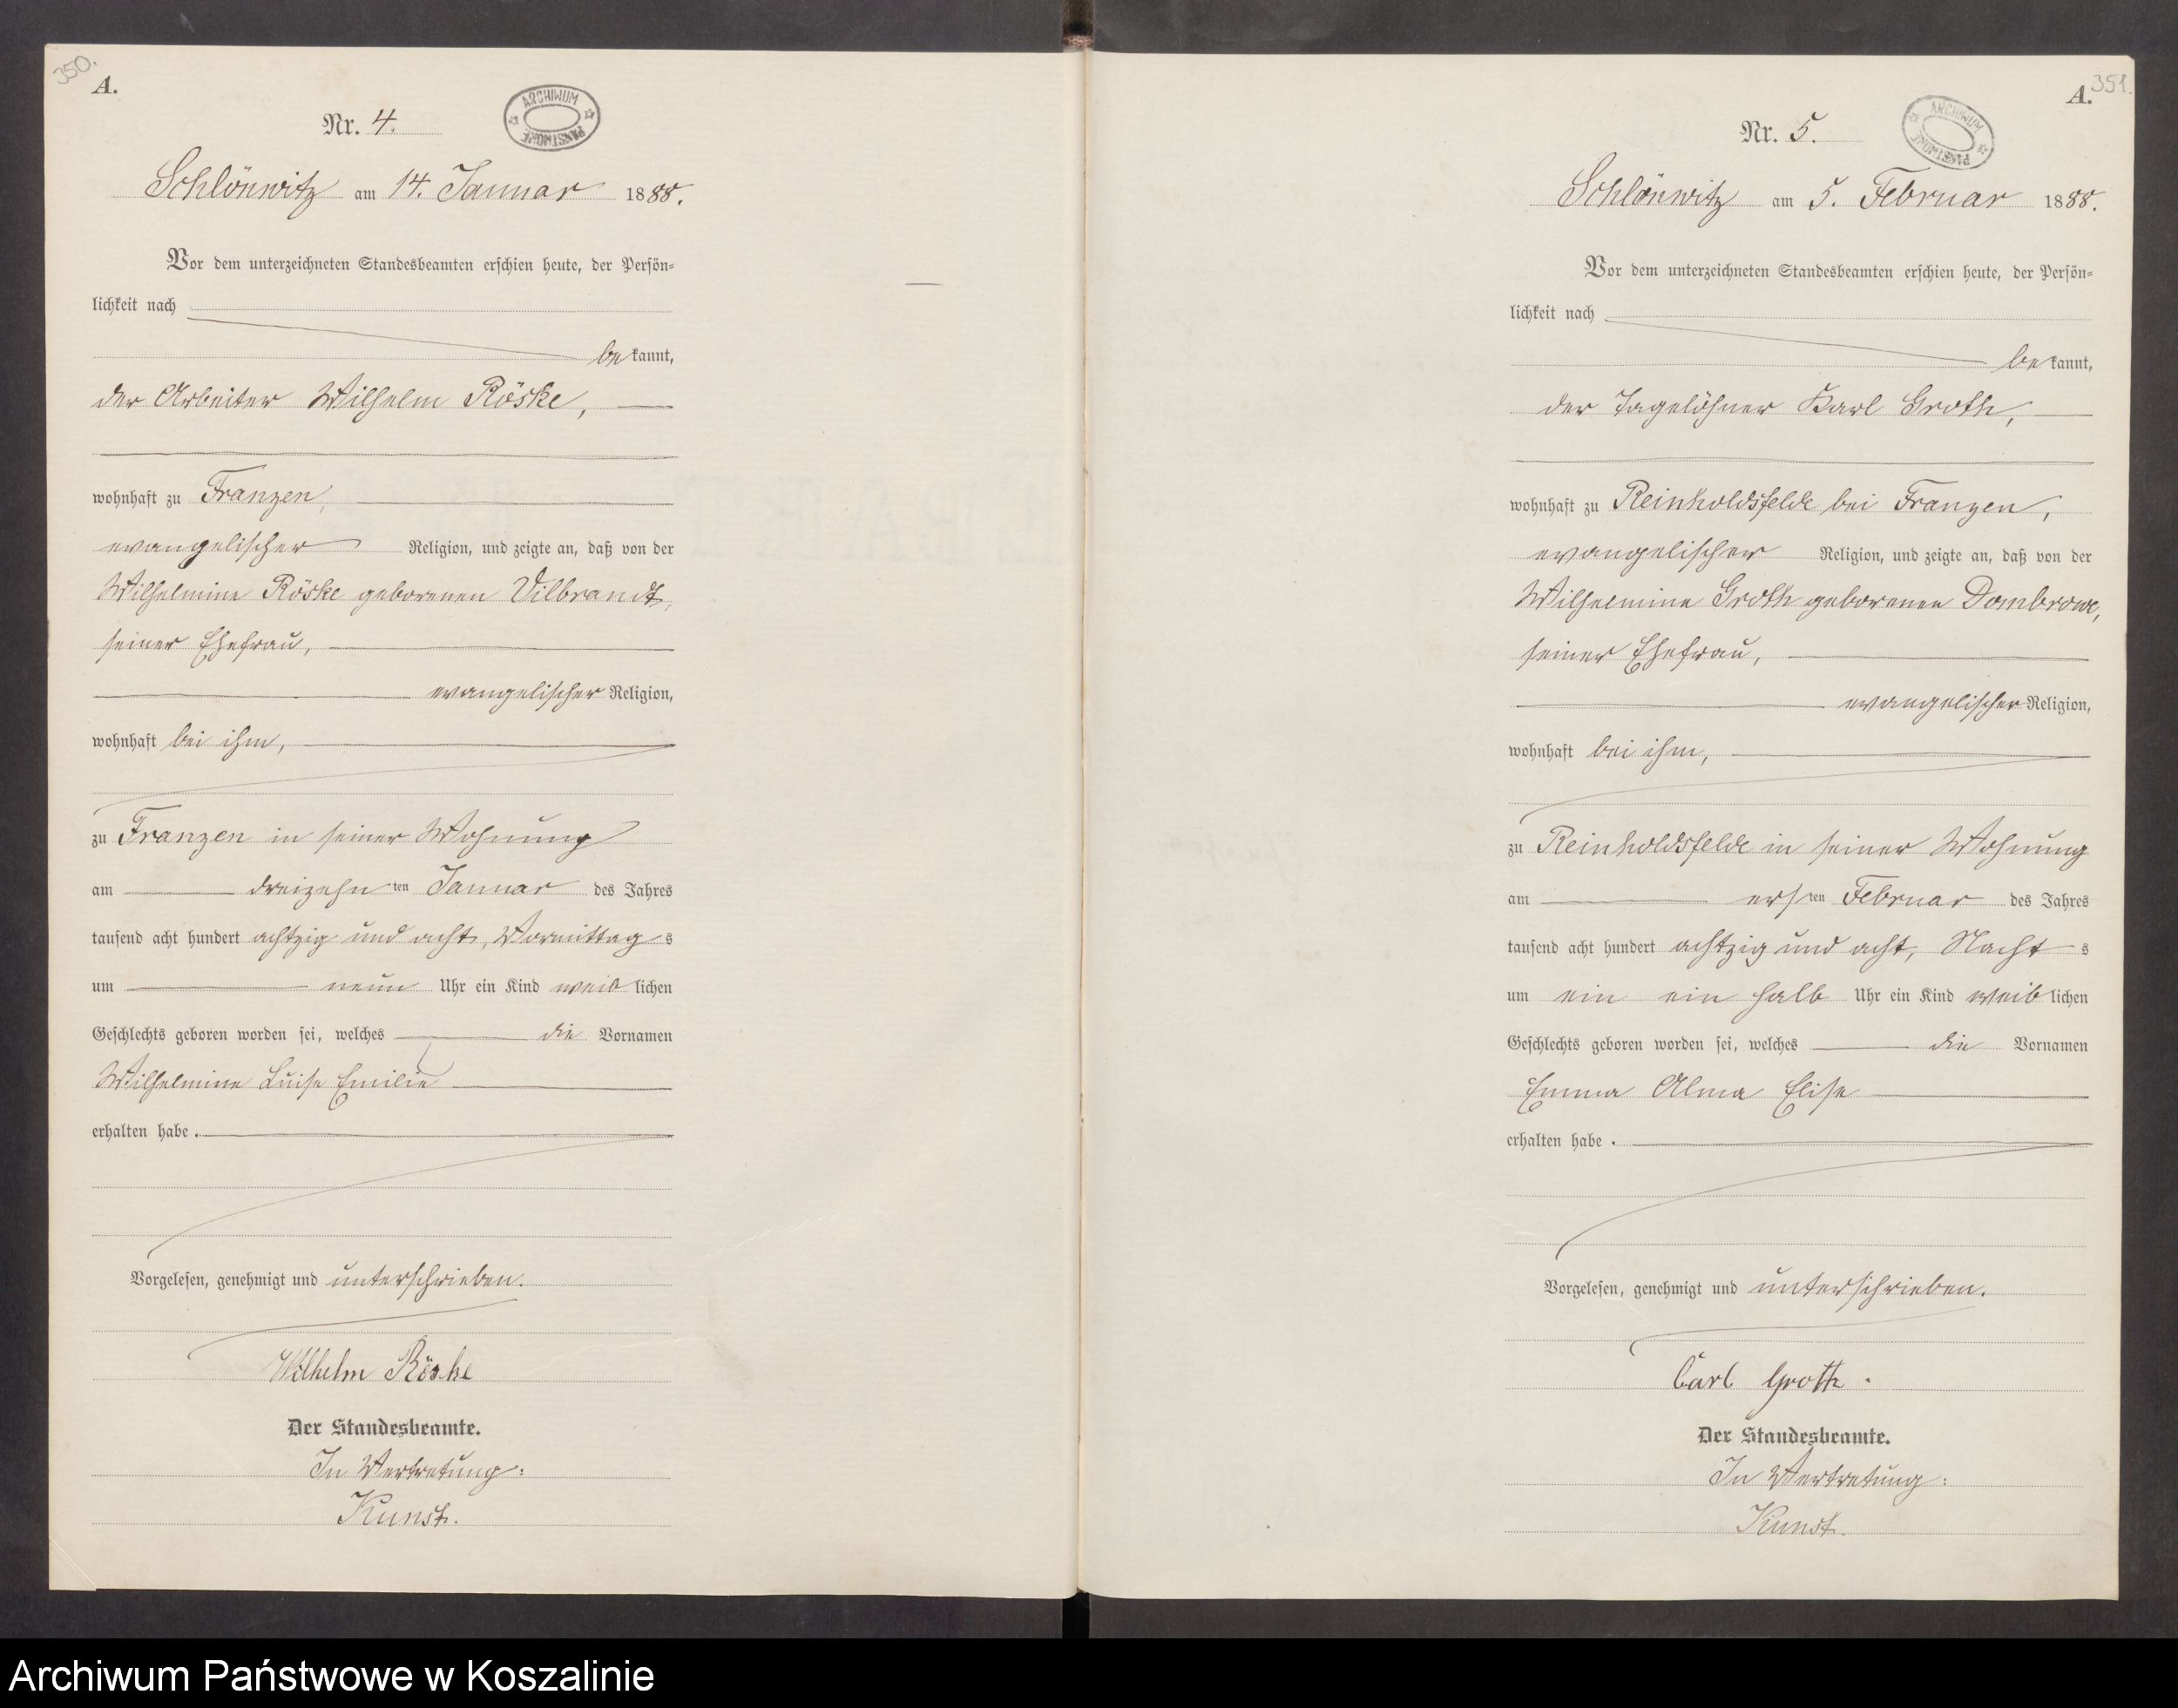 350.
A.
Nr. 4.
ARCHIWUM PAŃSTWOWE
Schlönwitz am 14. Januar 1888.
Vor dem unterzeichneten Standesbeamten erschien heute, der Persön=
lichkeit nach
bekannt,
der Arbeiter Wilhelm Röske,
wohnhaft zu Franzen,
evangelischer Religion, und zeigte an, daß von der
Wilhelmine Röske geborenen Vilbrandt,
seiner Ehefrau,
evangelischer Religion,
wohnhaft bei ihm,
zu Franzen in seiner Wohnung
am dreizehnten Januar des Jahres
tausend acht hundert achtzig und acht, Vormittags
um neun Uhr ein Kind weiblichen
Geschlechts geboren worden sei, welches die Vornamen
Wilhelmine Luise Emilie
erhalten habe.
Vorgelesen, genehmigt und unterschrieben.
Wilhelm Röske
Der Standesbeamte.
In Vertretung:
Kunst.
351.
A.
Nr. 5.
ARCHIWUM PAŃSTWOWE
Schlönwitz am 5. Februar 1888.
Vor dem unterzeichneten Standesbeamten erschien heute, der Persön=
lichkeit nach
bekannt,
der Tagelöhner Karl Groth,
wohnhaft zu Reinholdsfelde bei Franzen,
evangelischer Religion, und zeigte an, daß von der
Wilhelmine Groth geborenen Dombrowe,
seiner Ehefrau,
evangelischer Religion,
wohnhaft bei ihm,
zu Reinholdsfelde in seiner Wohnung
am ersten Februar des Jahres
tausend acht hundert achtzig und acht, Nachts
um ein ein halb Uhr ein Kind weiblichen
Geschlechts geboren worden sei, welches die Vornamen
Emma Alma Elise
erhalten habe.
Vorgelesen, genehmigt und unterschrieben.
Carl Groth.
Der Standesbeamte.
In Vertretung:
Kunst.
Archiwum Państwowe w Koszalinie